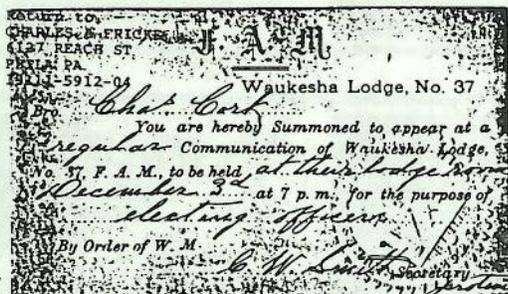 Return to
CHARLES N FRICKE
6127 REACH ST
PHILA PA
19111-5912-04
F. A. M
Waukesha Lodge, No. 37
Bro. Chas Cork
You are hereby Summoned to appear at a
regular Communication of Waukesha Lodge,
No. 37, F. A. M., to be held at their lodge room
December 3d at 7 p. m., for the purpose of
electing officers
By Order of W. M.
C W. Smith Secretary